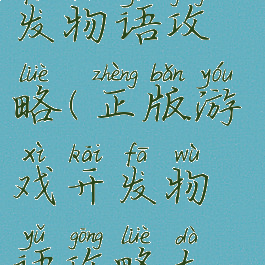 发物语攻
lüè zhèng bǎn yóu
略(正版游
xì kāi fā wù
戏开发物
yǔ gōng lüè dà
语攻略大